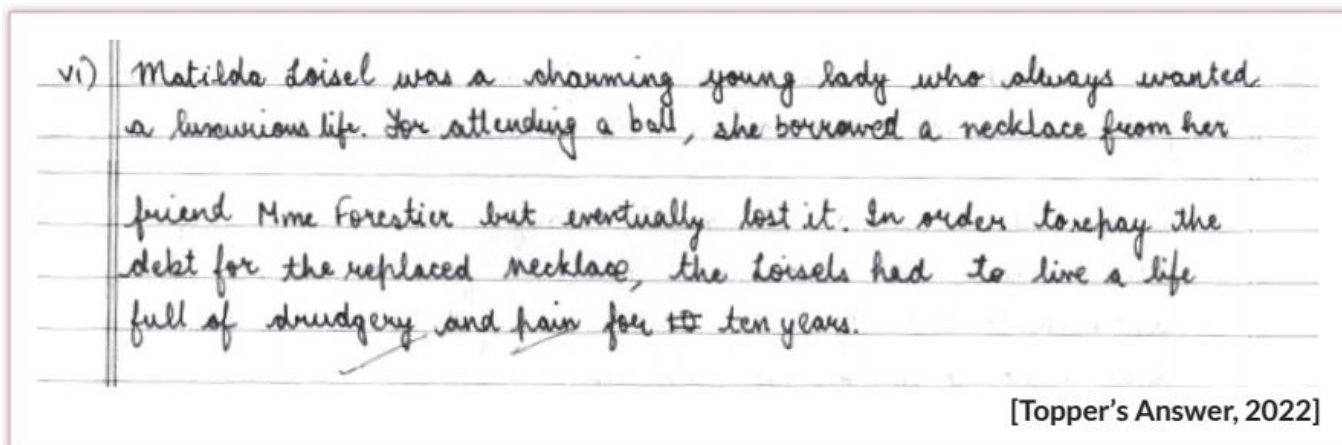 vi) Matilda Loisel was a charming young lady who always wanted
a luxurious life. For attending a ball, she borrowed a necklace from her
friend Mme Forestier but eventually lost it. In order to repay the
debt for the replaced necklace, the Loisels had to live a life
full of drudgery and pain for 10 ten years.
[Topper's Answer, 2022]